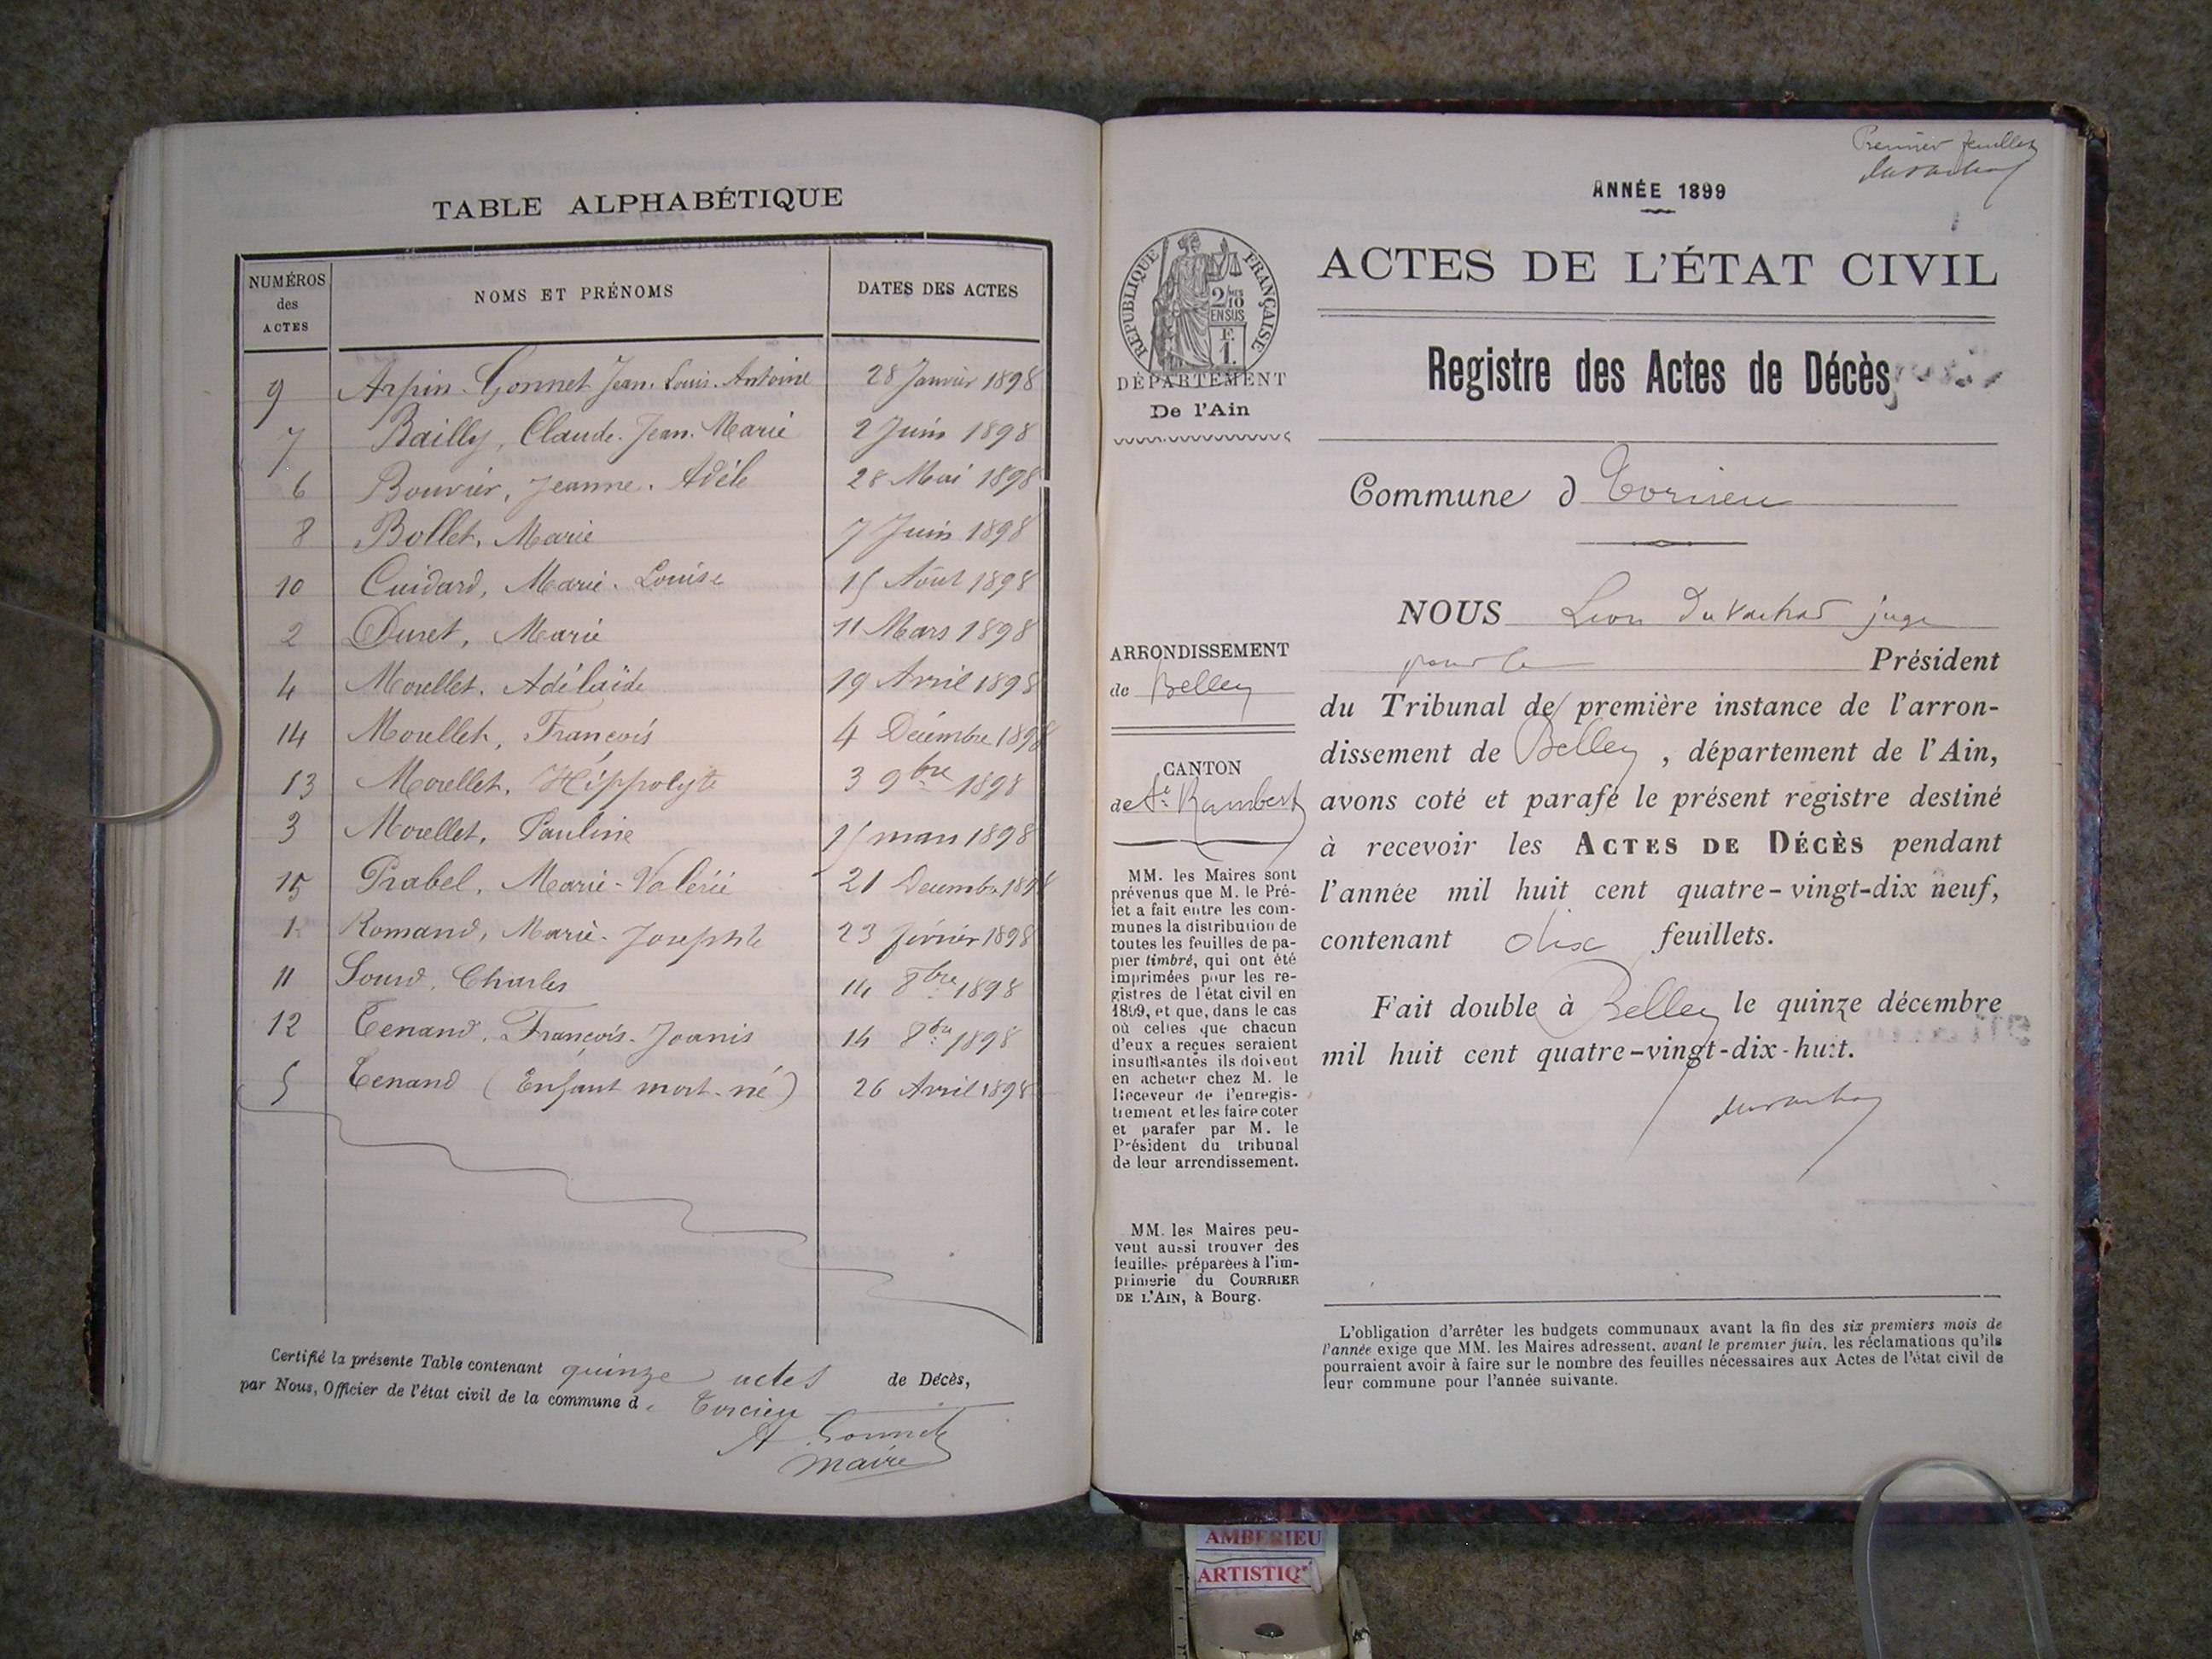 TABLE ALPHABÉTIQUE
NUMÉROS des ACTES
NOMS ET PRÉNOMS
DATES DES ACTES
9 Arpin-Gonnet Jean-Louis-Antoine 28 Janvier 1898
7 Bailly, Claude-Jean-Marie 2 Juin 1898
6 Bouvier, Jeanne-Adèle 28 Mai 1898
8 Bollet, Marie 7 Juin 1898
10 Cuidard, Marie-Louise 15 Août 1898
2 Duret, Marie 11 Mars 1898
4 Morellet, Adélaïde 19 Avril 1898
14 Morellet, François 4 Décembre 1898
13 Morellet, Hippolyte 3 9bre 1898
3 Morellet, Pauline 15 mars 1898
15 Prabel, Marie-Valérie 21 Décembre 1898
1 Romand, Marie-Josephte 23 février 1898
11 Sourd, Charles 14 8bre 1898
12 Tenand, François-Joanis 14 8bre 1898
5 Tenand (Enfant mort-né) 26 Avril 1898
Certifié la présente Table contenant quinze actes de Décès,
par Nous, Officier de l'état civil de la commune de Torcieu
A. Gonnet
Maire
Premier feuillet
Duvachat
ANNÉE 1899
RÉPUBLIQUE FRANÇAISE
2/10
EN SUS
F.
1.
DÉPARTEMENT
De l'Ain
ACTES DE L'ÉTAT CIVIL
Registre des Actes de Décès
Commune d Torcieu
NOUS Léon Duvachat juge
pour le Président
du Tribunal de première instance de l'arron-
dissement de Belley, département de l'Ain,
avons coté et parafé le présent registre destiné
à recevoir les ACTES DE DÉCÈS pendant
l'année mil huit cent quatre-vingt-dix neuf,
contenant dix feuillets.
Fait double à Belley le quinze décembre
mil huit cent quatre-vingt-dix-huit.
Duvachat
ARRONDISSEMENT
de Belley
CANTON
de St Rambert
MM. les Maires sont
prévenus que M. le Pré-
fet a fait entre les com-
munes la distribution de
toutes les feuilles de pa-
pier timbré, qui ont été
imprimées pour les re-
gistres de l'état civil en
1899, et que, dans le cas
où celles que chacun
d'eux a reçues seraient
insuffisantes ils doivent
en acheter chez M. le
Receveur de l'enregis-
trement et les faire coter
et parafer par M. le
Président du tribunal
de leur arrondissement.
MM. les Maires peu-
vent aussi trouver des
feuilles préparées à l'im-
primerie du COURRIER
DE L'AIN, à Bourg.
L'obligation d'arrêter les budgets communaux avant la fin des six premiers mois de
l'année exige que MM. les Maires adressent, avant le premier juin, les réclamations qu'ils
pourraient avoir à faire sur le nombre des feuilles nécessaires aux Actes de l'état civil de
leur commune pour l'année suivante.
AMBERIEU
ARTISTIQ